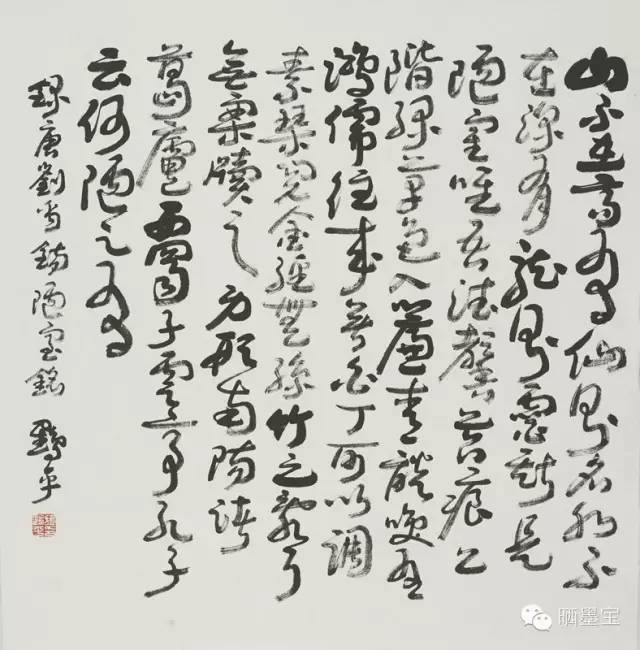 山不在高有仙則名水不
在深有龍則靈斯是
陋室唯吾德馨苔痕上
階綠草色入簾青談笑有
鴻儒往來無白丁可以調
素琴閱金經無絲竹之亂耳
無案牘之勞形南陽諸
葛廬西蜀子雲亭孔子
云何陋之有
錄唐劉禹錫陋室銘
晒墨宝